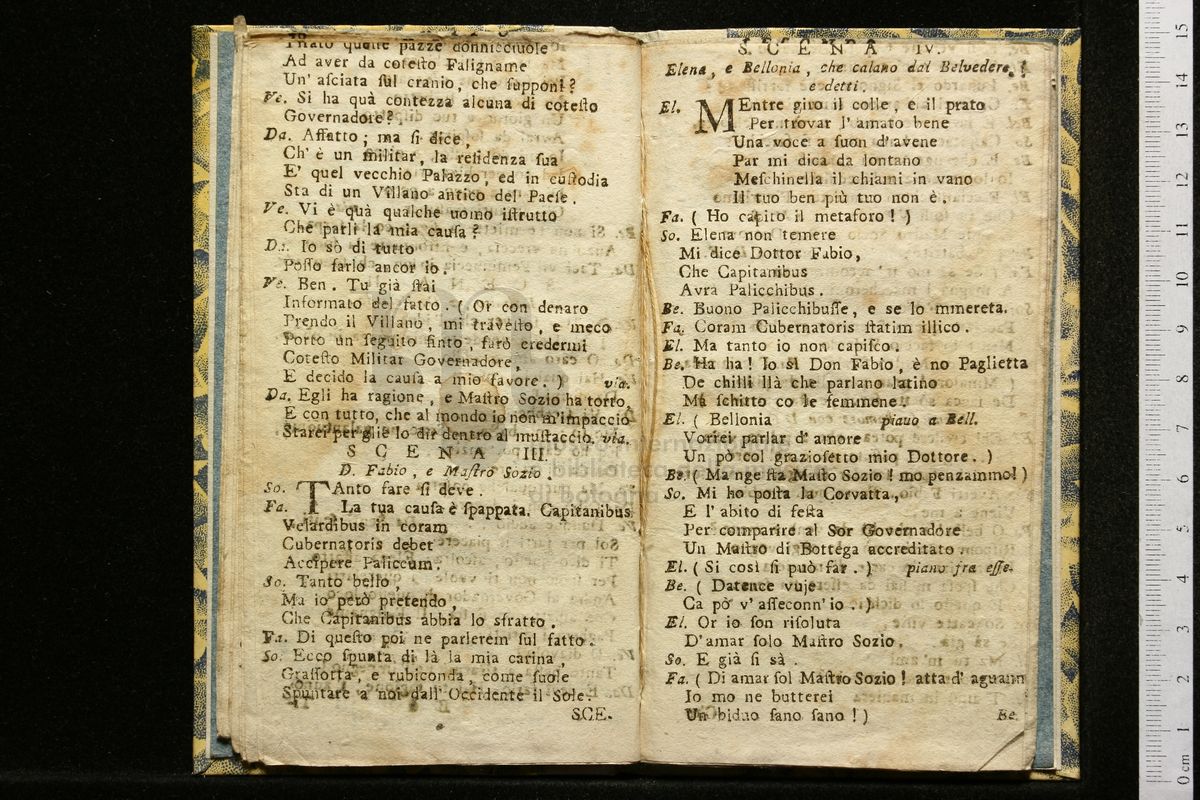 queste pazze donnicciuole
Ad aver da cotesto Faligname
Un' asciata sul cranio, che supponi?
Ve. Si ha quà contezza alcuna di cotesto
Governadore?
Da. Affatto; ma si dice,
Ch' è un militar, la residenza sua
E' quel vecchio Palazzo, ed in custodia
Sta di un Villano antico del Paese.
Ve. Vi è quà qualche uomo istrutto
Che parli la mia causa?
Da. Io sò di tutto
Posso farlo ancor io.
Ve. Ben. Tu già stai
Informato del fatto. (Or con denaro
Prendo il Villano, mi travesto, e meco
Porto un seguito finto, farò credermi
Cotesto Militar Governadore,
E decido la causa a mio favore.) via.
Da. Egli ha ragione, e Mastro Sozio ha torto,
E con tutto, che al mondo io non m'impaccio
Starei per glie lo dir dentro al mustaccio. via.
SCENA III.
D. Fabio, e Mastro Sozio.
So. TAnto fare si deve.
Fa. La tua causa è spappata. Capitanibus
Velardibus in coram
Cubernatoris debet
Accipere Paliccum.
So. Tanto bello,
Ma io però pretendo,
Che Capitanibus abbia lo sfratto.
Fa. Di questo poi ne parlerem sul fatto.
So. Ecco spunta di là la mia carina,
Grassotta, e rubiconda, come suole
Spuntare a noi dall' Occidente il Sole.
SCE.
SCENA IV.
Elena, e Bellonia, che calano dal Belvedere,
e detti.
El. MEntre giro il colle, e il prato
Per trovar l' amato bene
Una voce a suon d' avene
Par mi dica da lontano
Meschinella il chiami in vano
Il tuo ben più tuo non è.
Fa. ( Ho capito il metaforo! )
So. Elena non temere
Mi dice Dottor Fabio,
Che Capitanibus
Avra Palicchibus.
Be. Buono Palicchibusse, e se lo mmereta.
Fa. Coram Cubernatoris statim illico.
El. Ma tanto io non capisco.
Be. Ha ha! Io si Don Fabio, è no Paglietta
De chilli llà che parlano latino
Ma schitto co le femmene!
El. ( Bellonia piano a Bell.
Vorrei parlar d' amore
Un pò col graziosetto mio Dottore. )
Be. ( Mange sta Masto Sozio! mo penzammo! )
So. Mi ho posta la Corvatta,
E l' abito di festa
Per comparire al Sor Governadore
Un Mastro di Bottega accreditato.
El. ( Si così si può far. ) piano fra esse.
Be. ( Datence vuje
Ca pò v' asseconn' io. )
El. Or io son risoluta
D' amar solo Mastro Sozio.
So. E già si sà.
Fa. ( Di amar sol Mastro Sozio! atta d' aguann
Io mo ne butterei
Un biduo sano sano! ) Be.